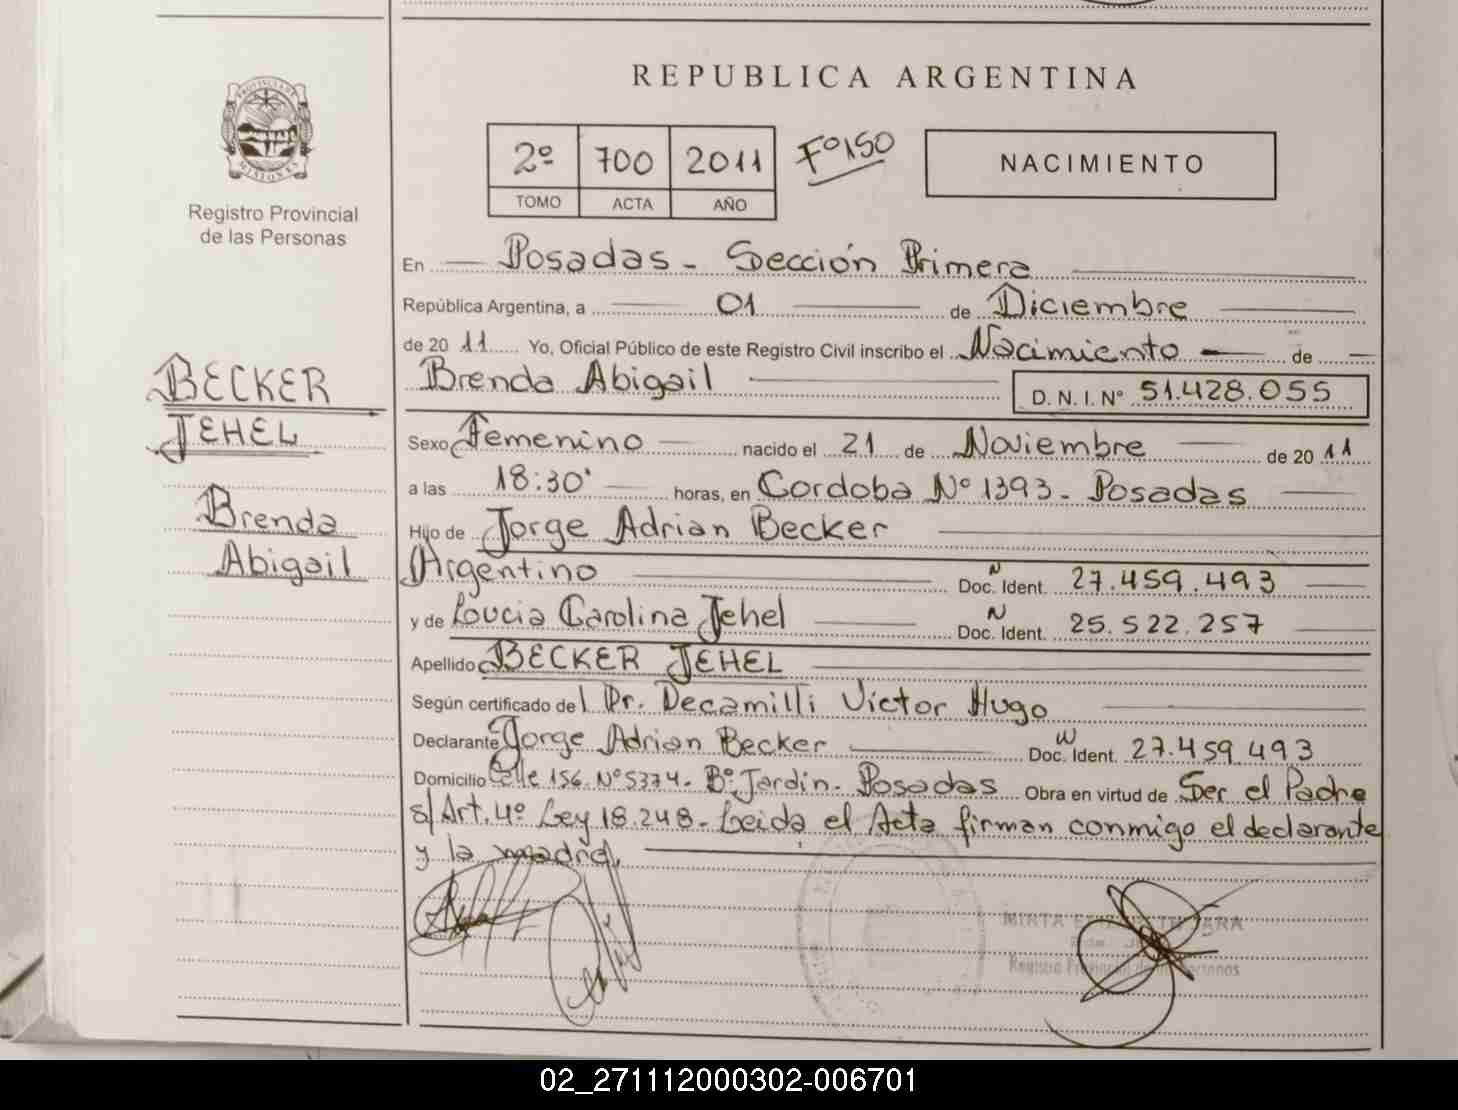 REPUBLICA ARGENTINA
PROVINCIA DE MISIONES
Registro Provincial
de las Personas
2º 700 2011 Fº150
TOMO ACTA AÑO
NACIMIENTO
En Posadas - Sección Primera
República Argentina, a 01 de Diciembre
de 20 11 Yo, Oficial Público de este Registro Civil inscribo el Nacimiento de
Brenda Abigail D. N. I. Nº 51.428.055
BECKER
JEHEL
Brenda
Abigail
Sexo Femenino nacido el 21 de Noviembre de 20 11
a las 18:30' horas, en Cordoba Nº 1393 - Posadas
Hijo de Jorge Adrian Becker
Argentino Doc. Ident. N 27.459.493
y de Loucia Carolina Jehel Doc. Ident. N 25.522.257
Apellido BECKER JEHEL
Según certificado del Dr. Decamilli Victor Hugo
Declarante Jorge Adrian Becker Doc. Ident. 27.459.493
Domicilio Calle 156 Nº 5374 - Bº Jardin - Posadas Obra en virtud de Ser el Padre
s/ Art. 4º Ley 18.248 - Leida el Acta firman conmigo el declarante
y la madre.
MIRTA
Registro Provincial de las Personas
02_271112000302-006701